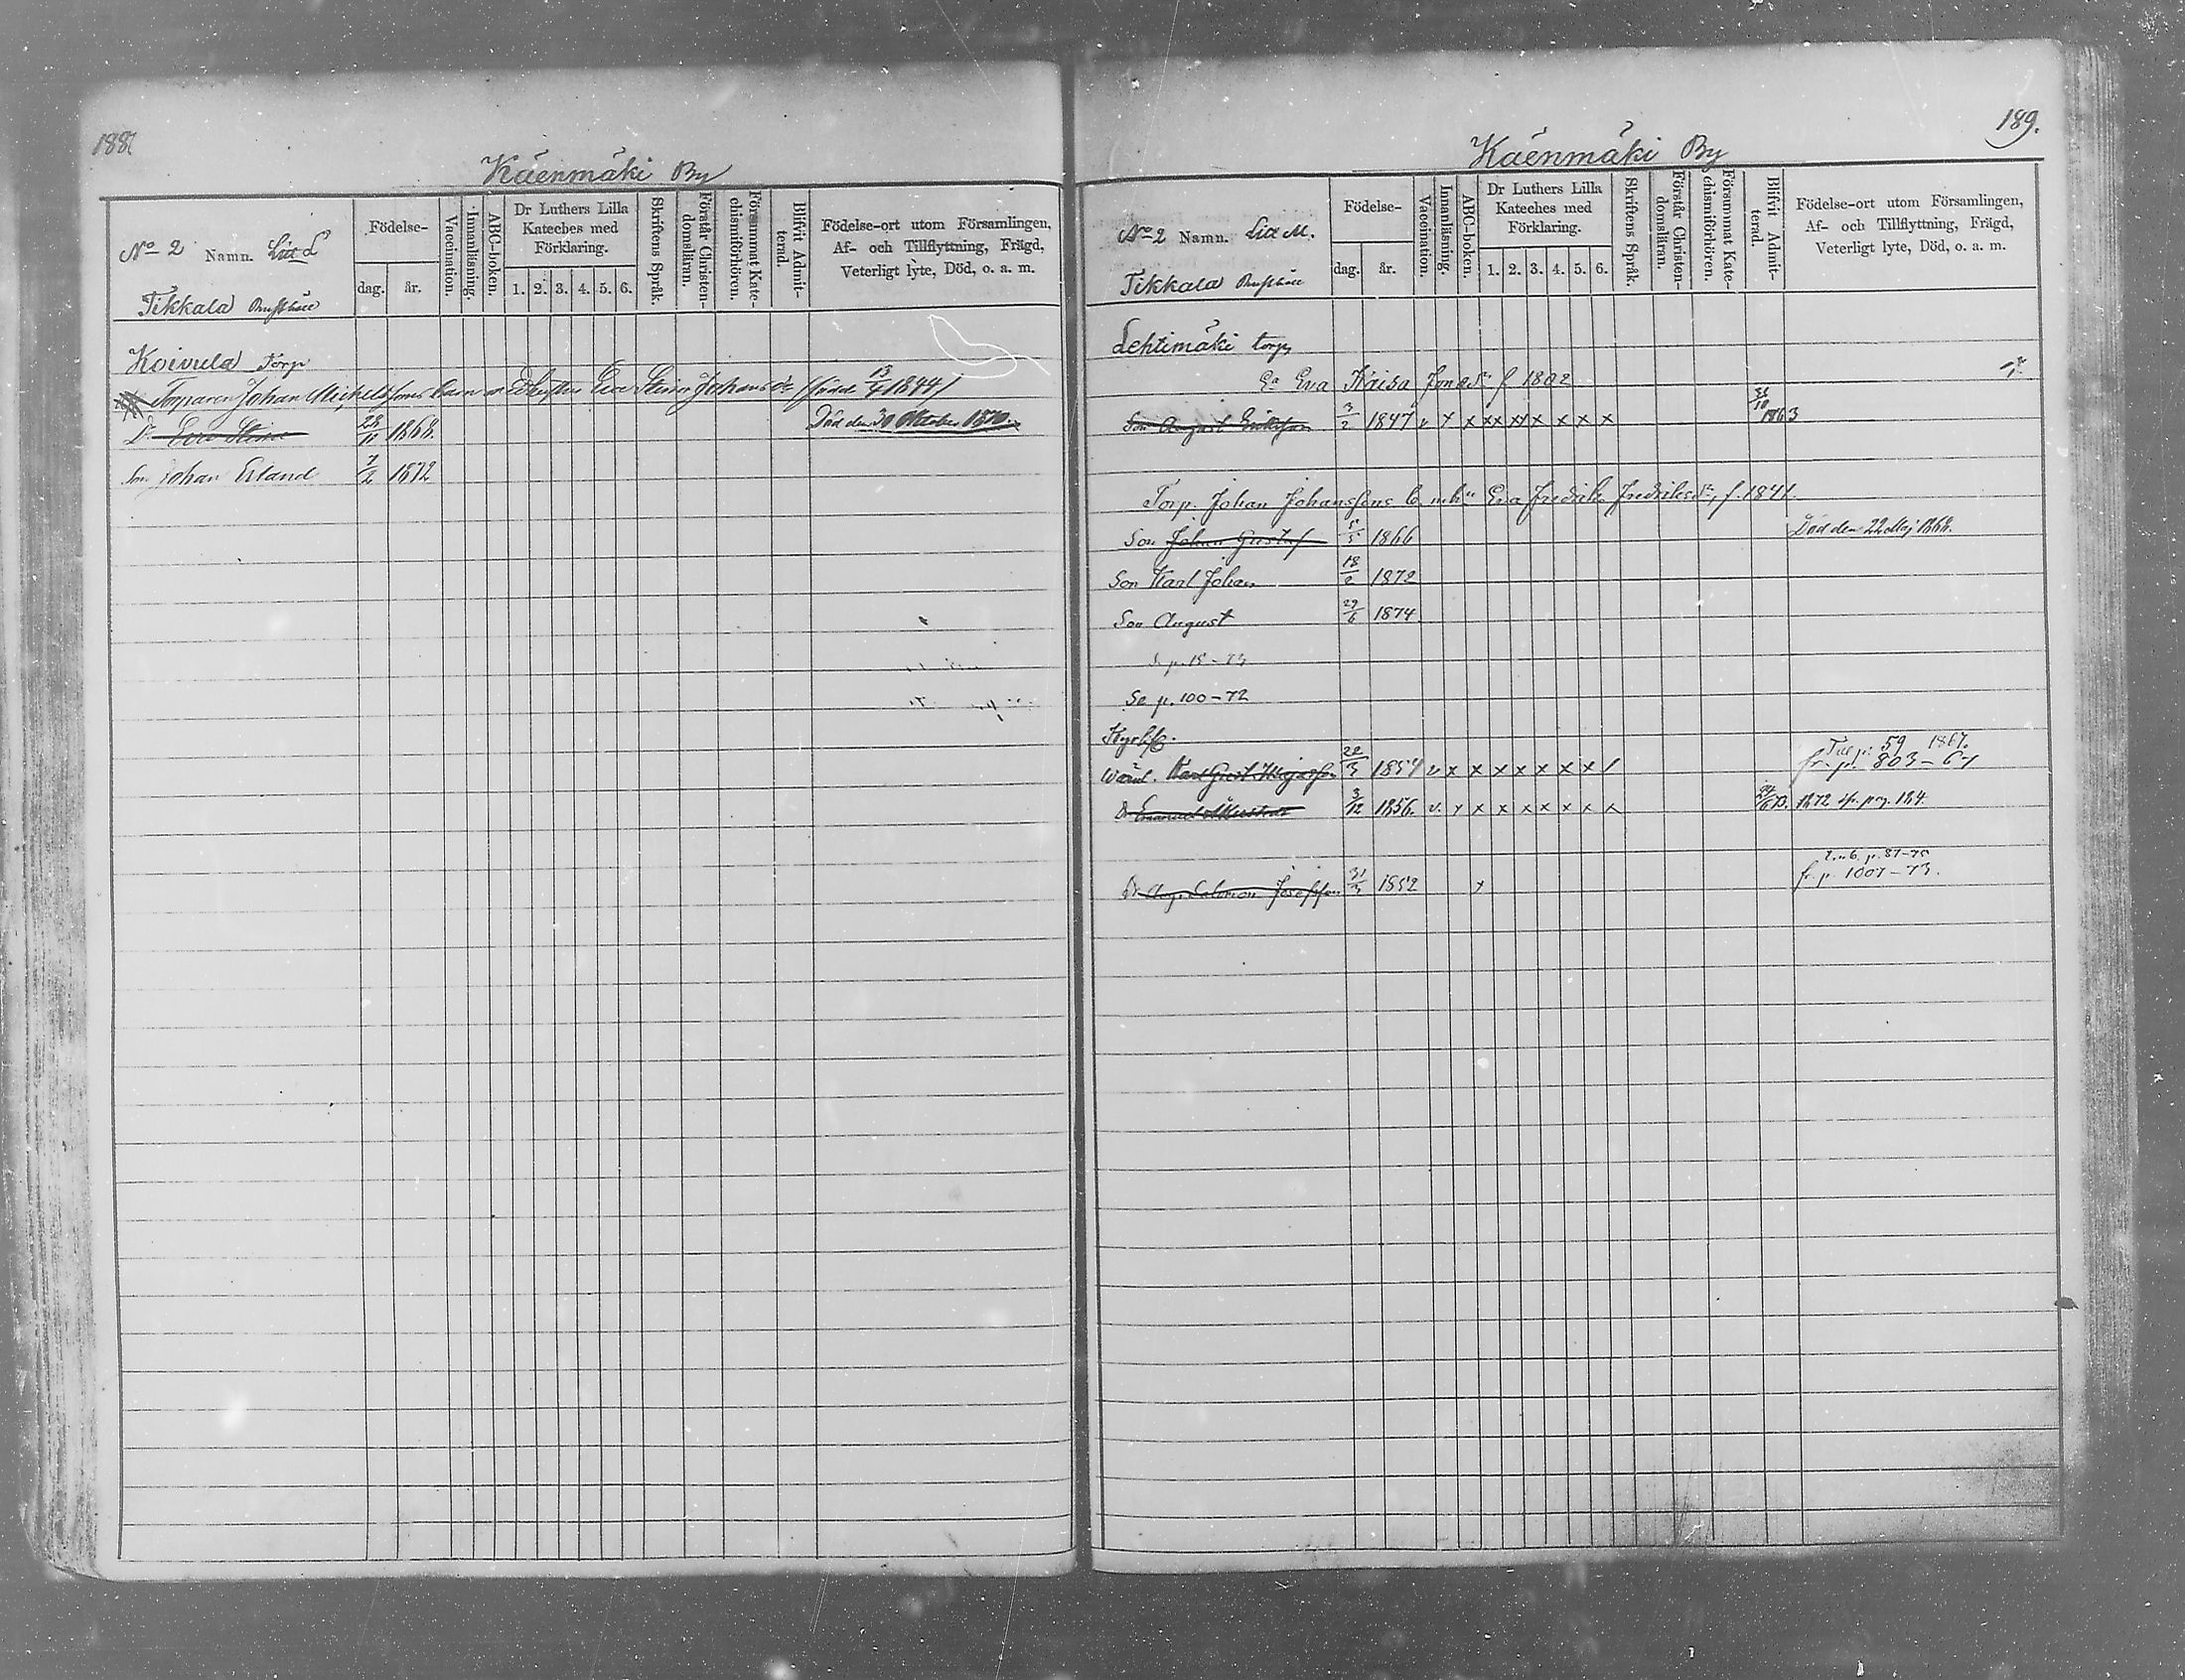 188
Käenmäki By
No 2 Namn. Litt L
Födelse-
dag. år.
Vaccination.
Innanläsning.
ABC-boken.
Dr Luthers Lilla Kateches med Förklaring.
1. 2. 3. 4. 5. 6.
Skriftens Språk.
Förstår Christen-domsläran.
Försummat Kate-chismiförhören.
Blifvit Admit-terad.
Födelse-ort utom Församlingen,
Af- och Tillflyttning, Frägd,
Veterligt lyte, Död, o. a. m.
Tikkala Rusthåll
Koivula Torp
Torparen Johan Michelssons barn Eva Stina Johansdr (född 13/4 1844)
Dr Eva Stina 28/11 1868. Död den 30 Oktober 1870.
Son Johan Erland 7/2 1872
189.
Käenmäki By
No 2 Namn. Litt M.
Födelse-
dag. år.
Vaccination.
Innanläsning.
ABC-boken.
Dr Luthers Lilla Kateches med Förklaring.
1. 2. 3. 4. 5. 6.
Skriftens Språk.
Förstår Christen-domsläran.
Försummat Kate-chismiförhören.
Blifvit Admit-terad.
Födelse-ort utom Församlingen,
Af- och Tillflyttning, Frägd,
Veterligt lyte, Död, o. a. m.
Tikkala Rusthåll
Lehtimäki torp
Ea Eva Kaisa Jonasdr f 1802
Son August Eriksson 3/2 1847 v x x xx xx x x x x 31/10 1863
Torp. Johan Johanssons b. m. h. Eva Fredrika Fredriksdr, f. 1841.
Son Johan Gustaf 5/5 1866 Död den 22 Maj 1868.
Son Karl Johan 18/2 1872
Son August 29/6 1874
Se p. 100-72
Till p. 59 1867.
Karl Gust. 22/3 1854 v x x x x x x x / fr. p. 803-67
Dr Emanuel 3/12 1856. v. x x x x x x x 24/6 73. 1872 fr. pag. 184.
Dr Aug. Salomon Josefsson 31/3 1852 x fr. p. 1007-73.